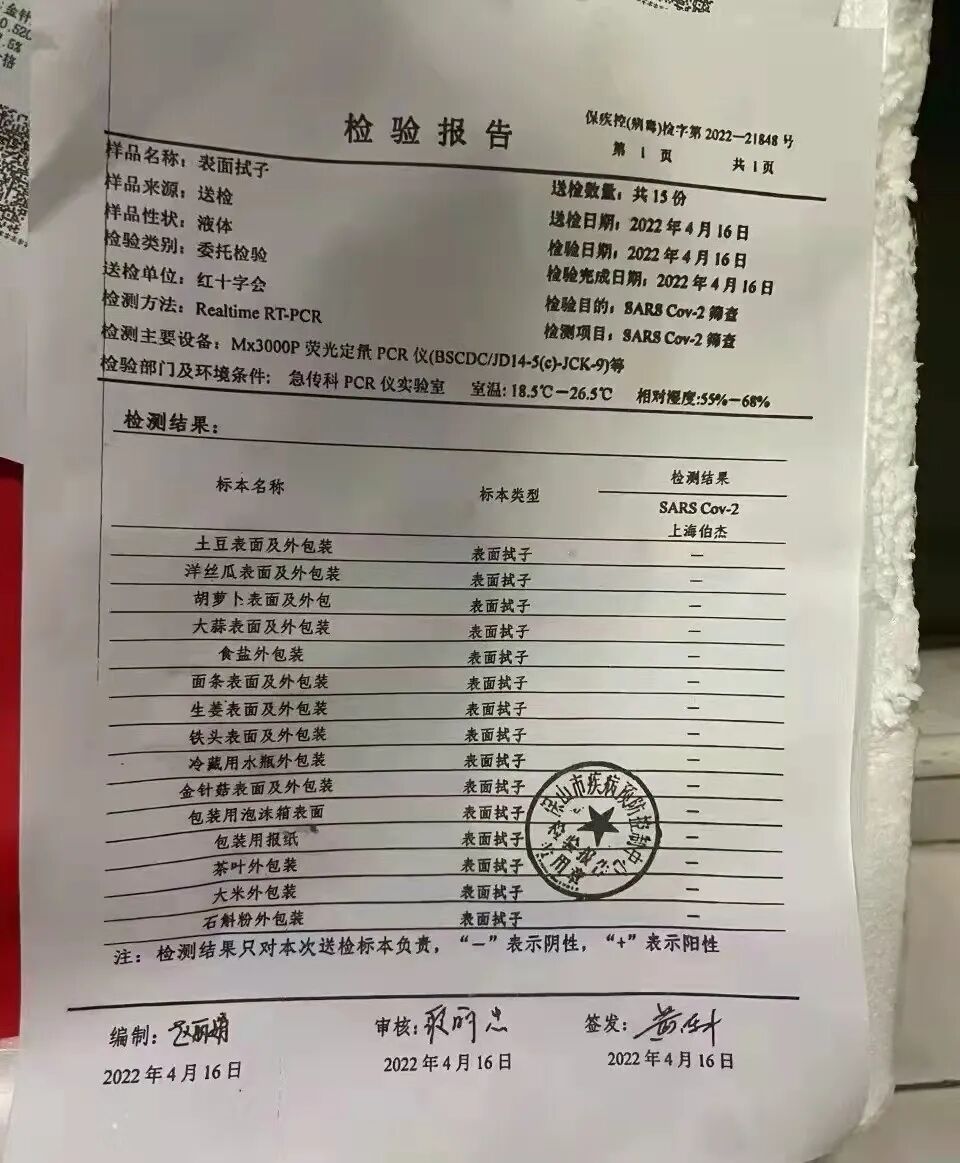 金针
0.520
.5%
格
检验报告
保疾控(病毒)检字第 2022—21848 号
第 1 页 共 1 页
样品名称：表面拭子
样品来源：送检 送检数量：共 15 份
样品性状：液体 送检日期：2022 年 4 月 16 日
检验类别：委托检验 检验日期：2022 年 4 月 16 日
送检单位：红十字会 检验完成日期：2022 年 4 月 16 日
检测方法：Realtime RT-PCR 检验目的：SARS Cov-2 筛查
检测项目：SARS Cov-2 筛查
检测主要设备：Mx3000P 荧光定量 PCR 仪(BSCDC/JD14-5(c)-JCK-9)等
检验部门及环境条件：急传科 PCR 仪实验室 室温: 18.5℃－26.5℃ 相对湿度:55%－68%
检测结果：
标本名称 标本类型 检测结果
SARS Cov-2
上海伯杰
土豆表面及外包装 表面拭子 —
洋丝瓜表面及外包装 表面拭子 —
胡萝卜表面及外包 表面拭子 —
大蒜表面及外包装 表面拭子 —
食盐外包装 表面拭子 —
面条表面及外包装 表面拭子 —
生姜表面及外包装 表面拭子 —
铁头表面及外包装 表面拭子 —
冷藏用水瓶外包装 表面拭子 —
金针菇表面及外包装 表面拭子 —
包装用泡沫箱表面 表面拭子 —
包装用报纸 表面拭子 —
茶叶外包装 表面拭子 —
大米外包装 表面拭子 —
石斛粉外包装 表面拭子 —
山市疾病预防控制中心
检验报告
专用章
注：检测结果只对本次送检标本负责，“－”表示阴性，“+”表示阳性
编制： 审核： 签发：
2022 年 4 月 16 日 2022 年 4 月 16 日 2022 年 4 月 16 日